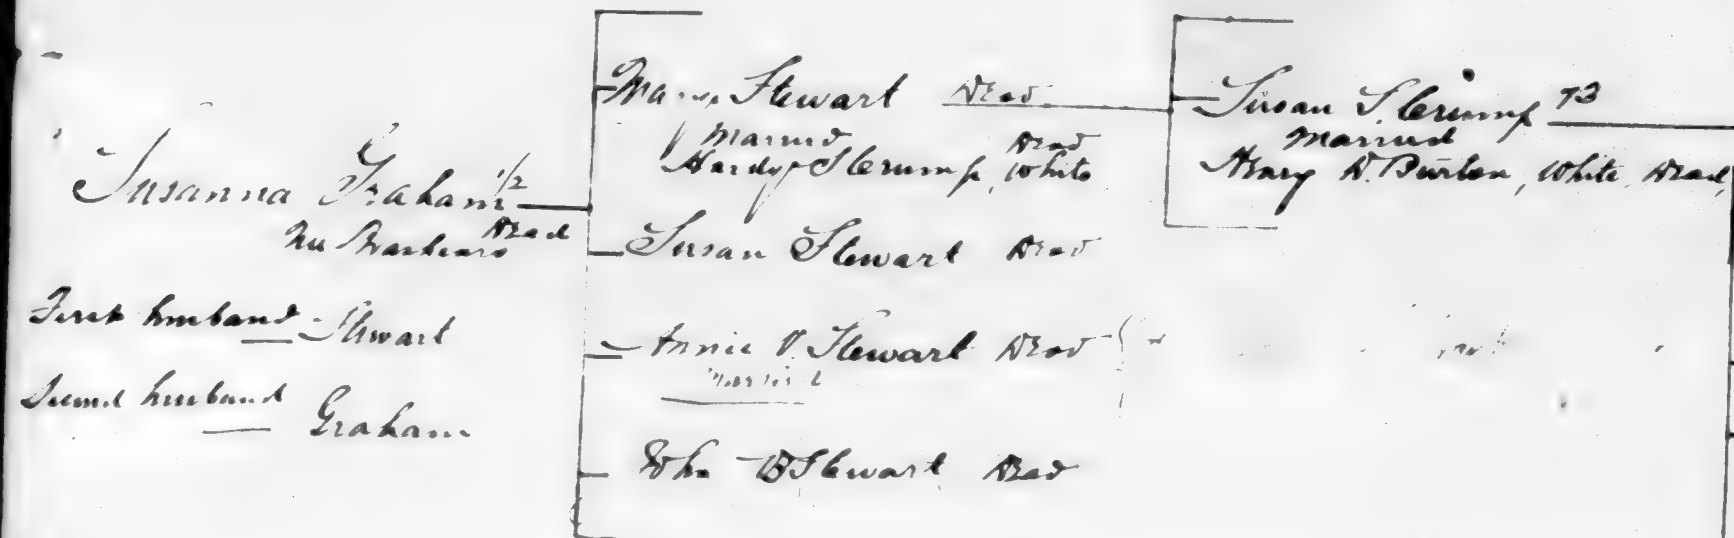 Susanna Graham 1/2
Dead
Nee Brashears
First husband — Stewart
Second husband — Graham
Mary Stewart Dead
Married Dead
Hardy S Crump, White
Susan Stewart Dead
Annie V. Stewart Dead
Married
John B Stewart Dead
Susan S. Crump 73
Married
Henry W. Burton, White, Dead,